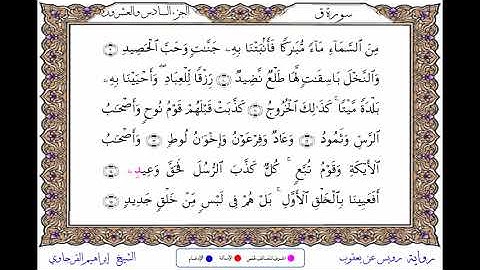 سورة ق
الجزء السادس والعشرون
مِنَ السَّمَآءِ مَآءً مُّبَٰرَكًا فَأَنۢبَتۡنَا بِهِۦ جَنَّٰتٍ وَحَبَّ ٱلۡحَصِيدِ
وَٱلنَّخۡلَ بَاسِقَٰتٍ لَّهَا طَلۡعٌ نَّضِيدٌ رِّزۡقًا لِّلۡعِبَادِ وَأَحۡيَيۡنَا بِهِۦ
بَلۡدَةً مَّيۡتًا كَذَٰلِكَ ٱلۡخُرُوجُ كَذَّبَتۡ قَبۡلَهُمۡ قَوۡمُ نُوحٍ وَأَصۡحَٰبُ
ٱلرَّسِّ وَثَمُودُ وَعَادٌ وَفِرۡعَوۡنُ وَإِخۡوَٰنُ لُوطٍ وَأَصۡحَٰبُ
ٱلۡأَيۡكَةِ وَقَوۡمُ تُبَّعٍ كُلٌّ كَذَّبَ ٱلرُّسُلَ فَحَقَّ وَعِيدِۦ
أَفَعَيِينَا بِٱلۡخَلۡقِ ٱلۡأَوَّلِ بَلۡ هُمۡ فِي لَبۡسٍ مِّنۡ خَلۡقٍ جَدِيدٍ
رواية رويس عن يعقوب
الإمالة
الإدغام
الشيخ إبراهيم الفرجاوي